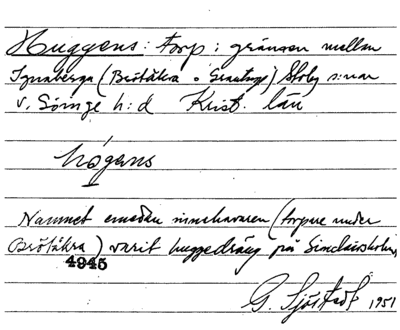 Huggens: torp i gränsen mellan
Ignaberga (Brötåkra o Grantinge) Stoby s:nar
V. Göinge h:d Krist. län
högens
Namnet emedan innehavaren (torpare under
Brötåkra) varit huggedräng på Sinclairsholm,
4945
G. Sjöstedt 1951